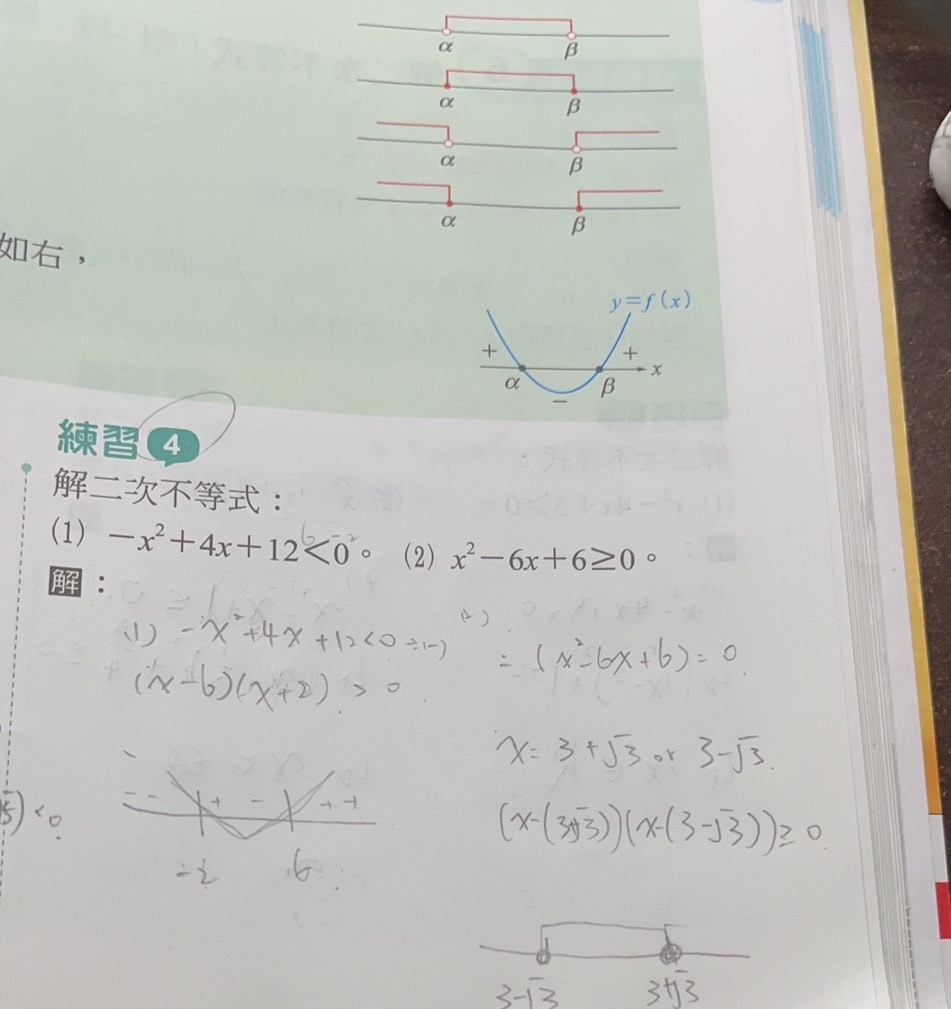 α β
α β
α β
α β
如右，
y=f(x)
+ + x
α β
−
練習 4
解二次不等式：
(1) −x²+4x+12<0。 (2) x²−6x+6≥0。
解：
(1) −x²+4x+12<0 ÷(−)
(x−6)(x+2)>0
(2)
=(x²−6x+6)=0
x=3+√3 or 3−√3.
(x−(3+√3))(x−(3−√3))≥0
− − + − + +
−2 6
<0
3−√3 3+√3